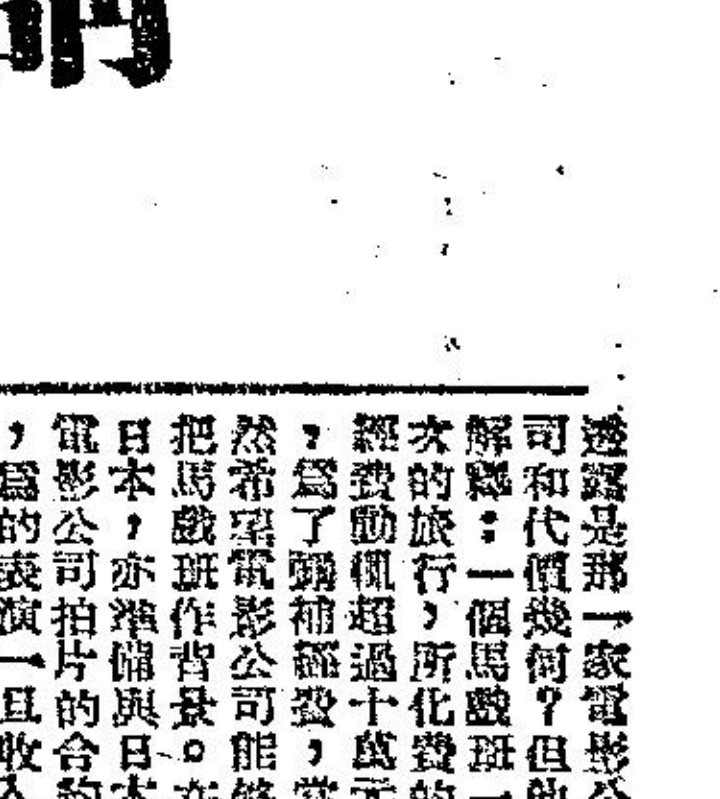 透露是那一家電影公
司和代價幾何？但他
解釋：一個馬戲班一
次的旅行，所化費的
經費動輒超過十萬元
，爲了彌補經費，當
然希望電影公司能够
把馬戲班作背景。在
日本，亦準備與日本
電影公司拍片的合約
，爲的表演一旦收入